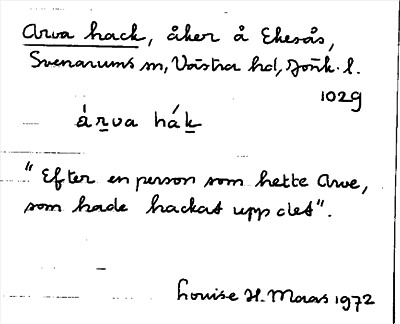 Arva hack, åker å Ekesås,
Svenarums sn, Västra hd, Jönk. l.
1029
árva hák
"Efter en person som hette Arve,
som hade hackat upp det".
Louise H. Maras 1972